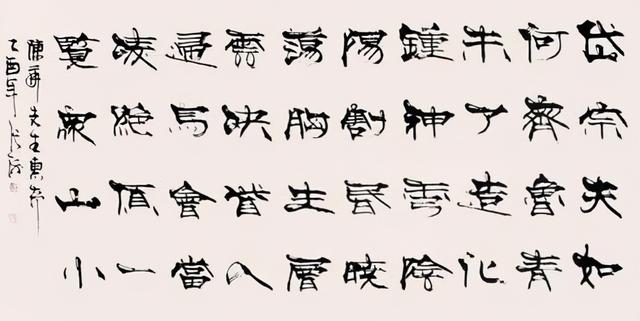 岱宗夫如
何齊魯青
未了造化
鍾神秀陰
陽割昏曉
蕩胸生層
雲決眥入
歸鳥會當
凌絕頂一
覽衆山小
陳先生惠存
乙酉年張海